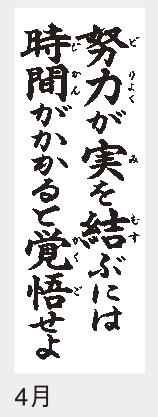 努力が実を結ぶには
時間がかかると覚悟せよ
4月